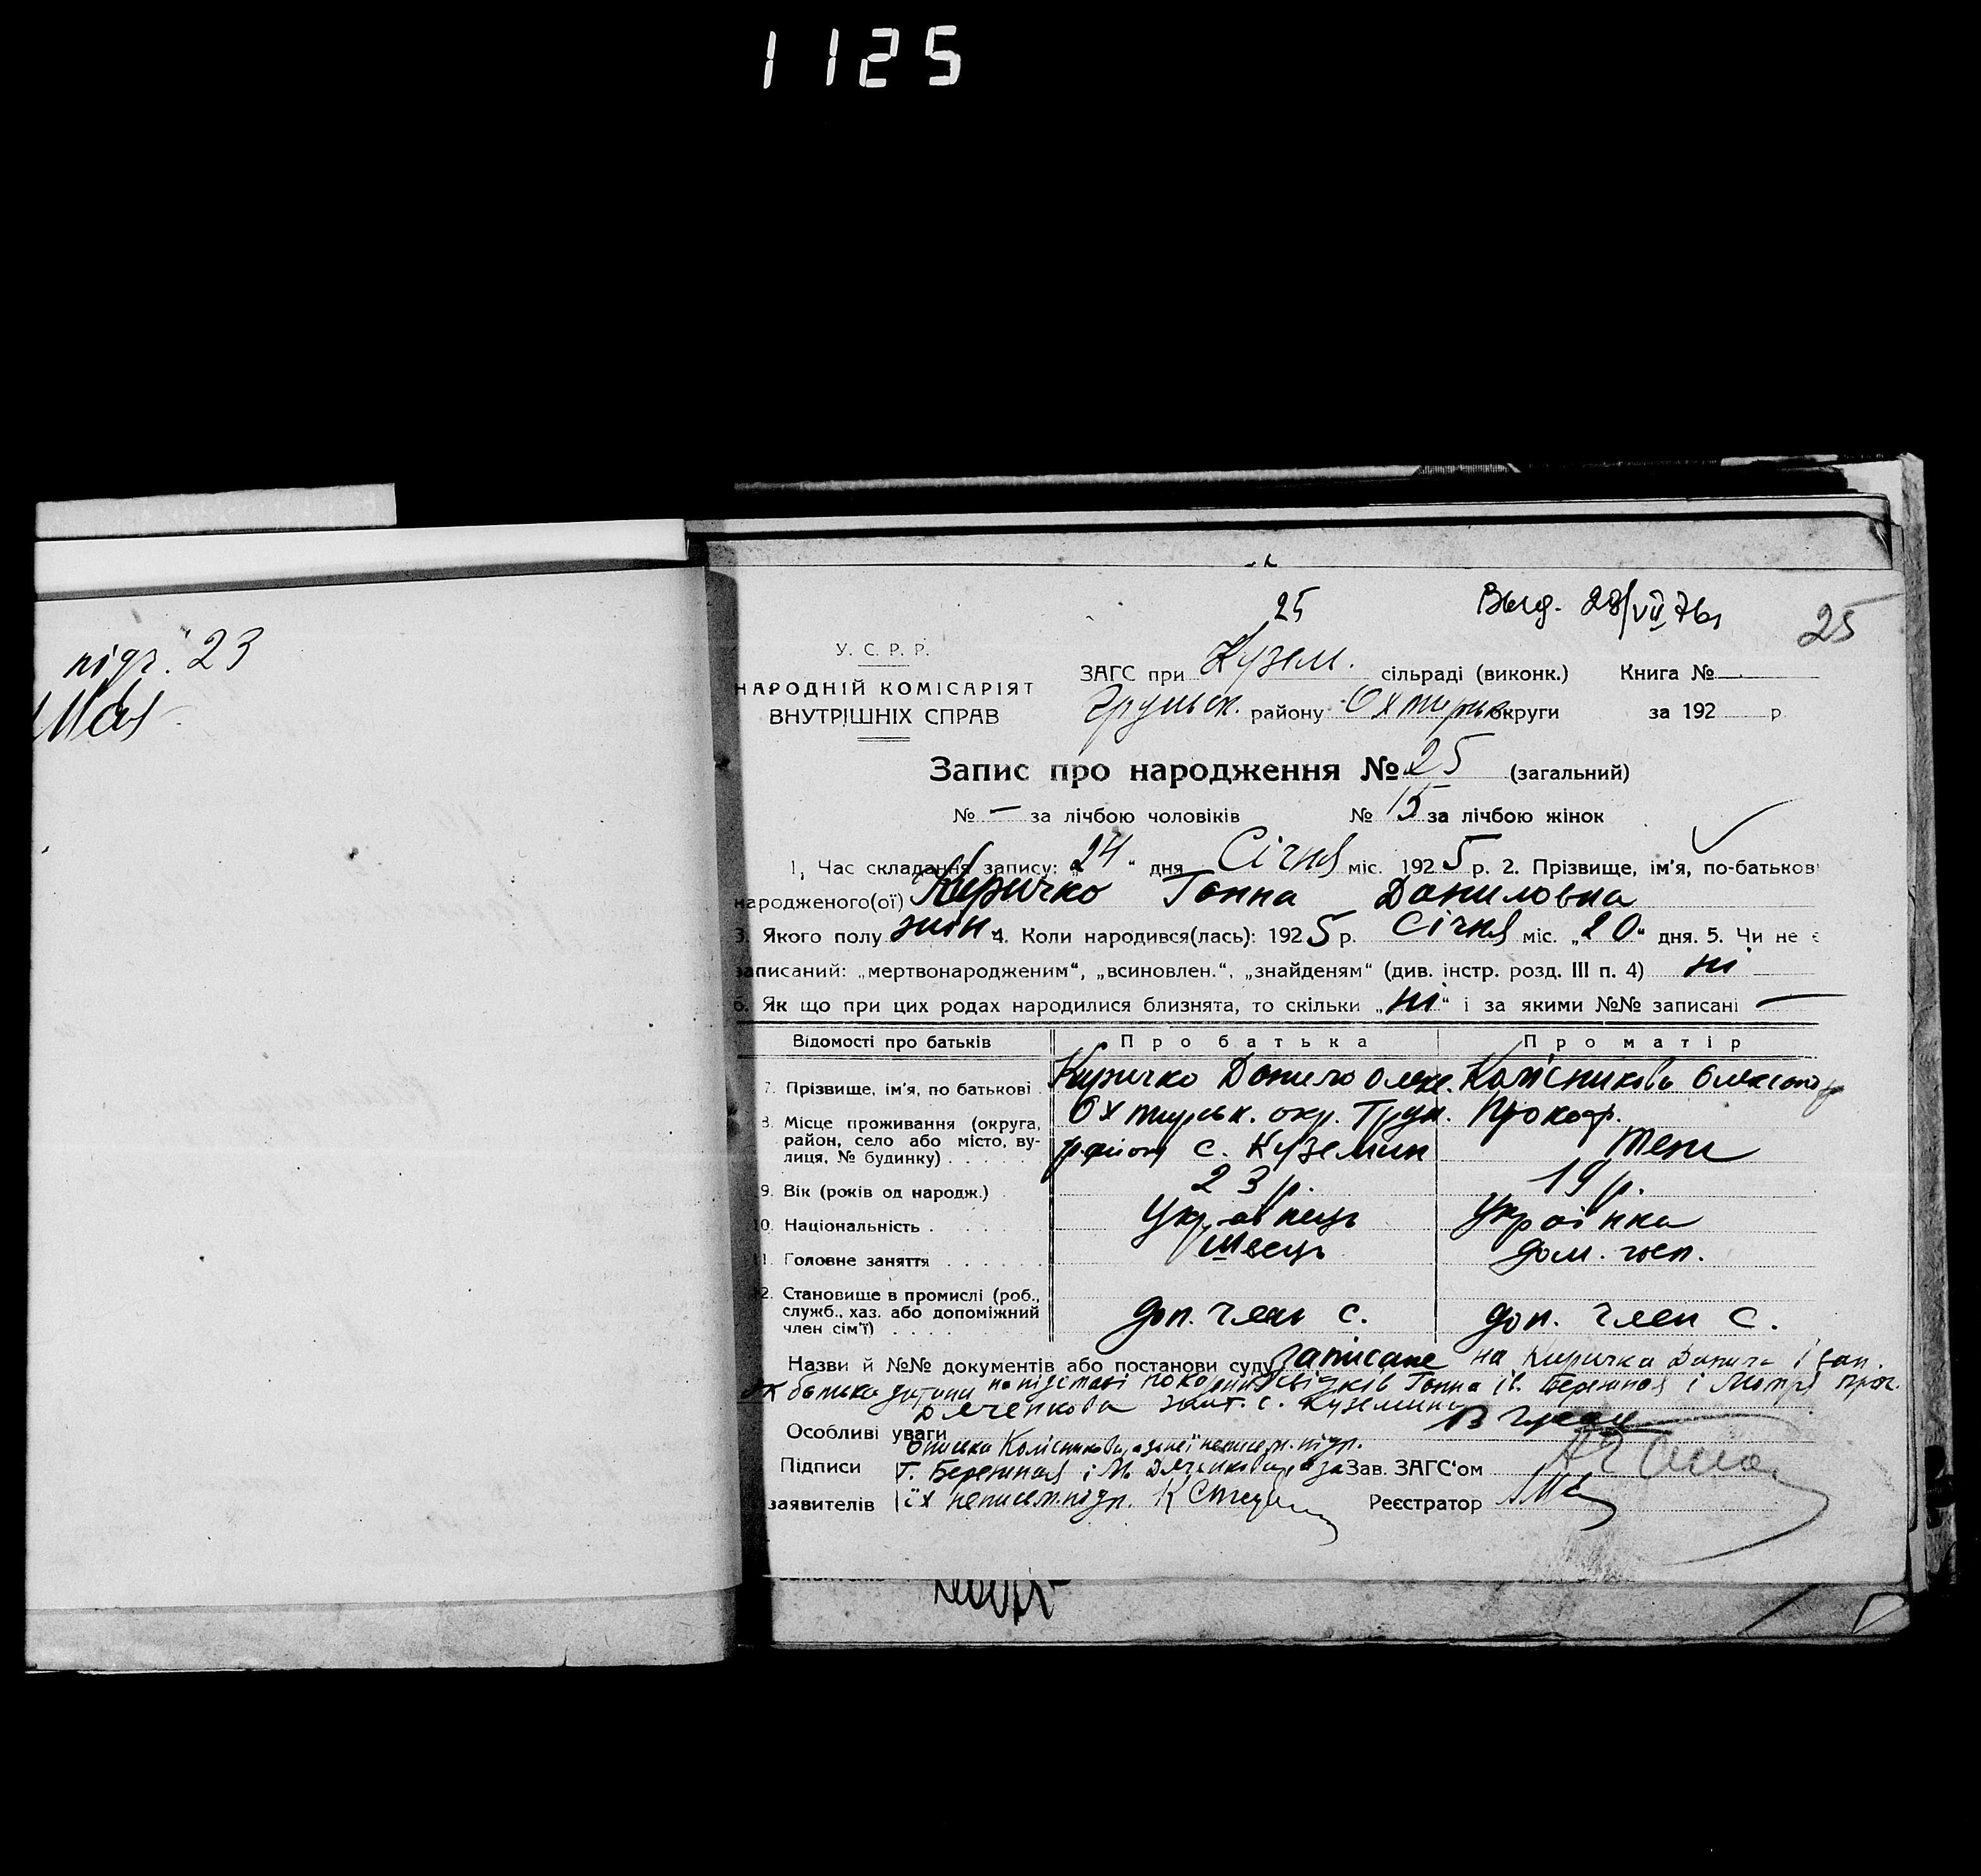 1125
25
Выд. 28/VII 76 25
підп. 23
У. С. Р. Р.
НАРОДНІЙ КОМІСАРІЯТ
ВНУТРІШНІХ СПРАВ
ЗАГС при Кузем. сільраді (виконк.) Книга №
Грунськ. району Охтирськ округи за 192 р
Запис про народження № 25 (загальний)
№ — за лічбою чоловіків № 15 за лічбою жінок
1, Час складання запису: „24“ дня Січня міс. 1925 р. 2. Прізвище, ім'я, по-батьков
народженого(ої) Киричко Ганна Даниловна
3. Якого полу жін. 4. Коли народився(лась): 1925 р. Січня міс. „20“ дня. 5. Чи не є
записаний: „мертвонародженим“, „всиновлен.“, „знайденям“ (див. інстр. розд. III п. 4) ні
6. Як що при цих родах народилися близнята, то скільки „ні“ і за якими №№ записані —
Відомості про батьків Про батька Про матір
7. Прізвище, ім'я, по батькові Киричко Данило Олекс. Колісникова Олександр
Прокоф.
8. Місце проживання (округа, район, село або місто, вулиця, № будинку) Охтирськ. окр. Грун.
район с. Куземин теж
9. Вік (років од народж.) 23 р. 19 р.
10. Національність Українець Українка
11. Головне заняття Швець дом. госп.
12. Становище в промислі (роб.,
служб., хаз. або допоміжний
член сім'ї) доп. член с. доп. член с.
Назви й №№ документів або постанови суду записане на Киричка Данила
як батька дитини на підставі свідків Ганна Ів. Бережная і Мотря
Дяченкова жит. с. Куземина
Особливі уваги
Колісникова, а за неї неписьм. підп.
Підписи Г. Бережная і М. Дяченкова, а за Зав. ЗАГС'ом
заявителів їх неписьм. підп. Реєстратор